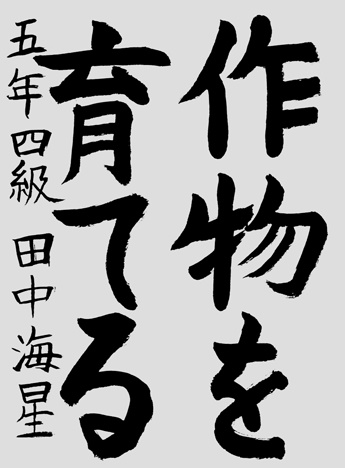 作物を
育てる
五年四級 田中海星